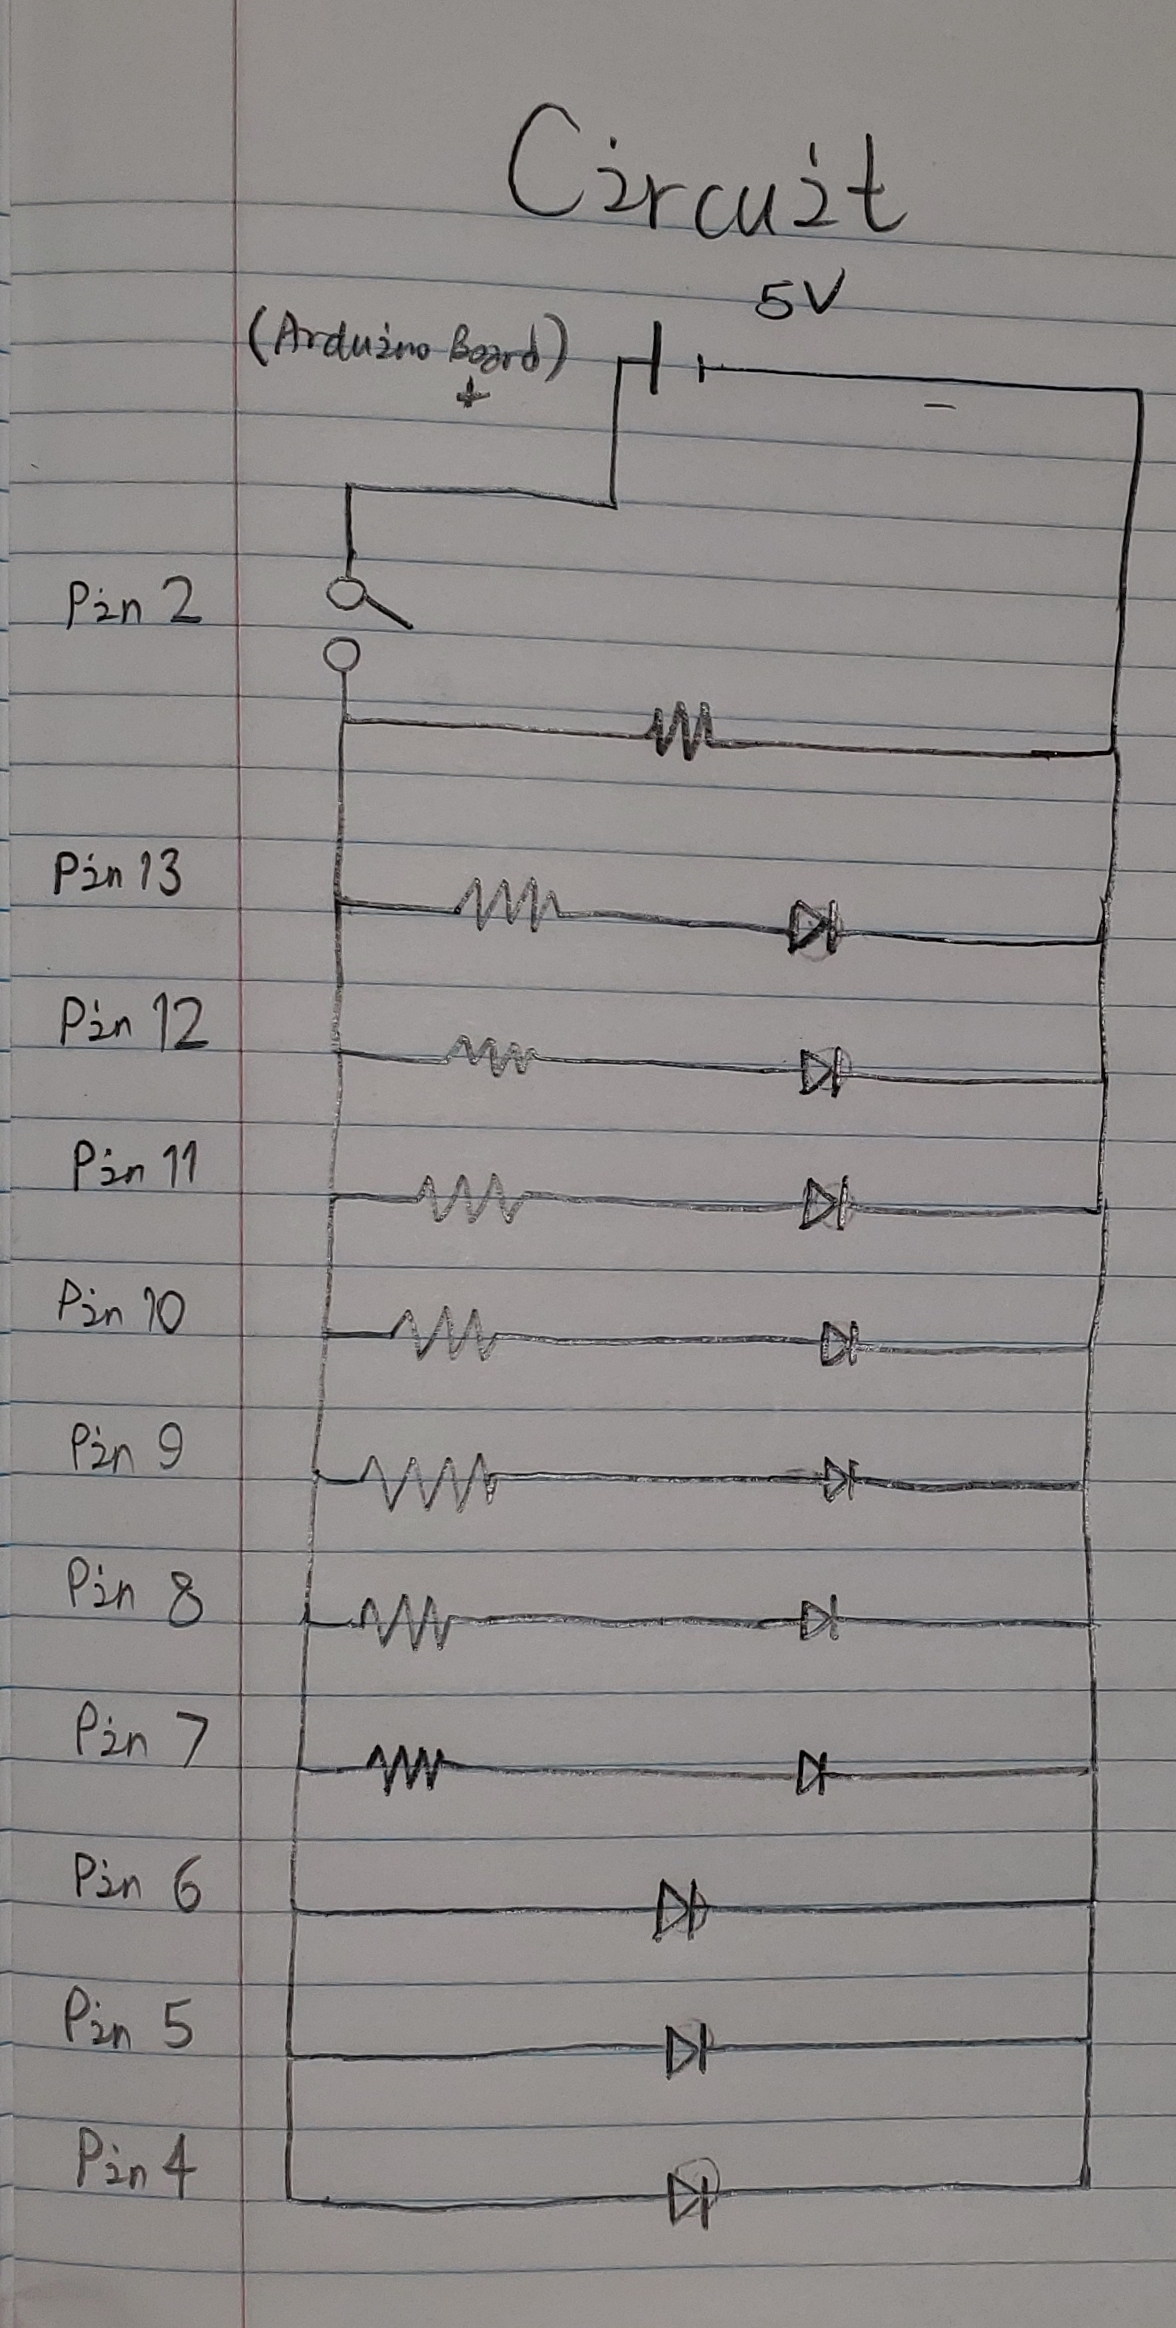 Circuit
5V
(Arduino Board)
+
-
Pin 2
Pin 13
Pin 12
Pin 11
Pin 10
Pin 9
Pin 8
Pin 7
Pin 6
Pin 5
Pin 4